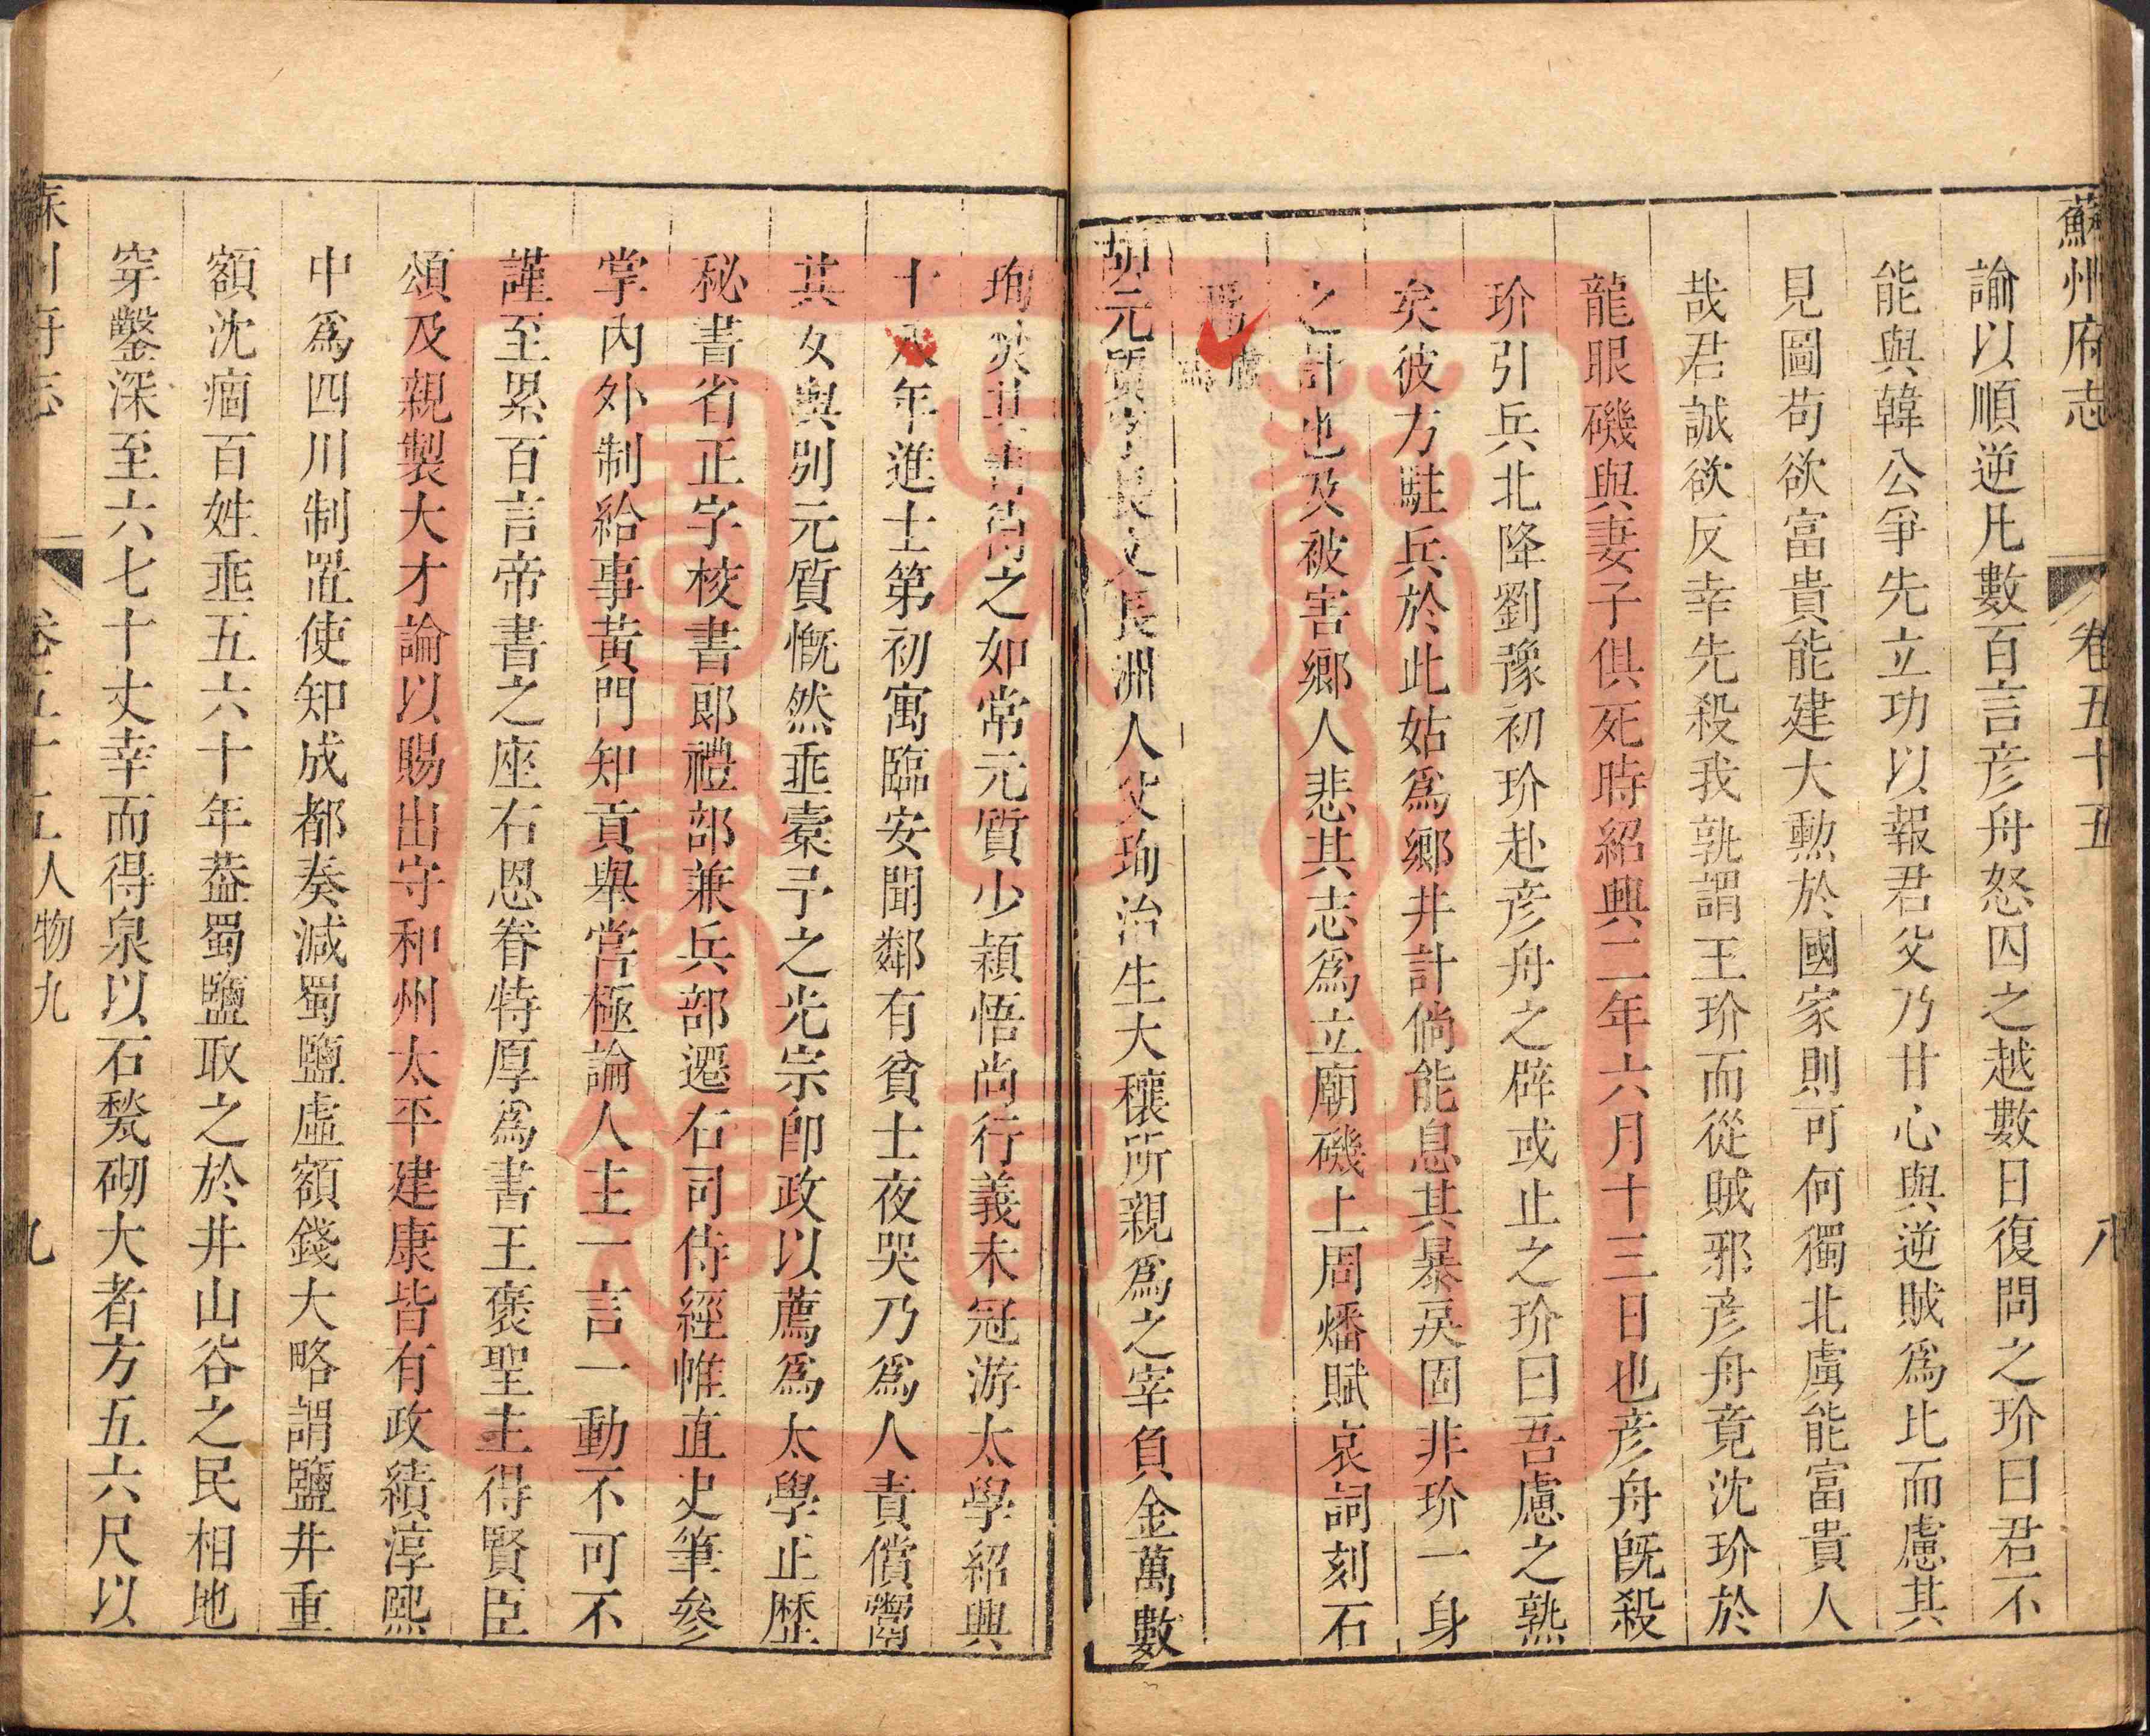 蘇州府志
卷五十五
八
諭以順逆凡數百言彦舟怒囚之越數日復問之玠曰君不
能與韓公爭先立功以報君父乃甘心與逆賊爲比而慮其
見圖苟欲富貴能建大勲於國家則可何獨北虜能富貴人
哉君誠欲反幸先殺我孰謂王玠而從賊邪彦舟竟沈玠於
龍眼磯與妻子俱死時紹興二年六月十三日也彦舟旣殺
玠引兵北降劉豫初玠赴彦舟之辟或止之玠曰吾慮之熟
矣彼方駐兵於此姑爲鄉井計倘能息其暴戾固非玠一身
之計也及被害鄉人悲其志爲立廟磯上周燔賦哀詞刻石
胡元質字長文長洲人父珣治生大穰所親爲之宰負金萬數
珣焚其尚之如常元質少穎悟尚行義未冠游太學紹興
十八年進士第初寓臨安聞鄰有貧士夜哭乃爲人責償鬻
其女與别元質慨然垂橐予之光宗卽政以薦爲太學正歷
秘書省正字校書郎禮部兼兵部遷右司侍經惟直史筆參
掌內外制給事黃門知貢舉嘗極論人主一言一動不可不
謹至累百言帝書之座右恩眷特厚爲書王褒聖主得賢臣
頌及親製大才論以賜出守和州太平建康皆有政績淳熙
中爲四川制置使知成都奏減蜀鹽虛額錢大略謂鹽井重
額沈痼百姓垂五六十年葢蜀鹽取之於井山谷之民相地
穿鑿深至六七十丈幸而得泉以石甃砌大者方五六尺以
蘇州府志
卷五十五人物九
九